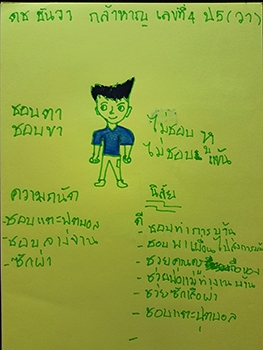 ดช ธันวา กล้าหาญ เลขที่ 4 ป5(วา)
ชอบตา
ชอบขา
ไม่ชอบ หู
ไม่ชอบ
ความถนัด
-ชอบเตะฟุตบอล
-ชอบล้างจาน
-ซักผ้า
นิสัย
ดี -ชอบทำการบ้าน
- ชอบพาเพื่อนไปส่ง
- ช่วย
- ช่วยพ่อแม่ทำงานบ้าน
- ช่วยซักเสื้อผ้า
- ชอบเตะฟุตบอล
-